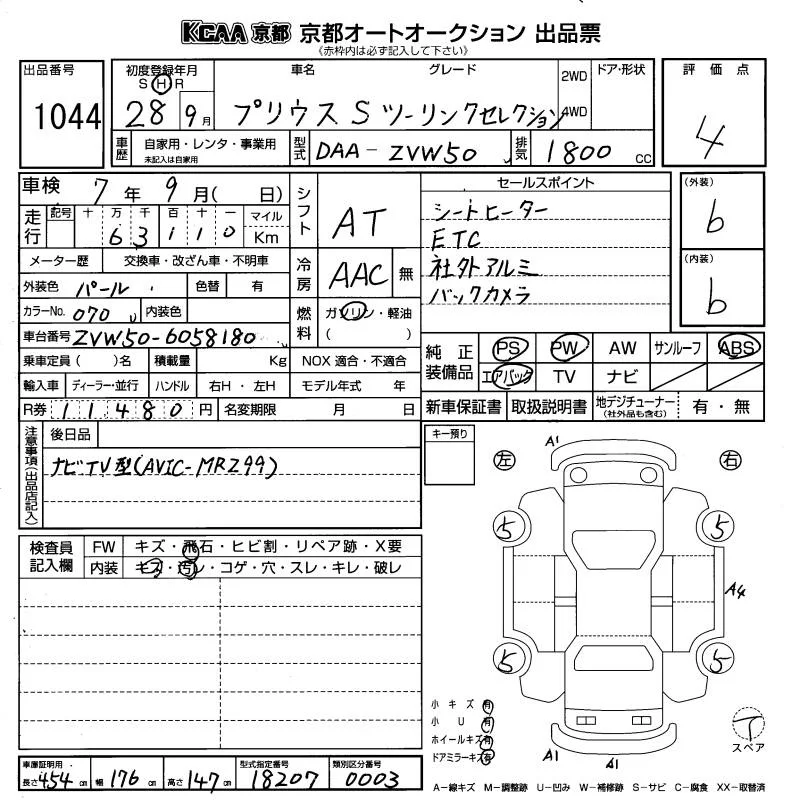 KCAA 京都 京都オートオークション 出品票
《赤枠内は必ず記入して下さい》
出品番号
1044
初度登録年月
S H R
28 9月
車名 グレード
プリウス S ツーリングセレクション
2WD
4WD
ドア・形状
評価点
4
車歴
自家用・レンタ・事業用
未記入は自家用
型式
DAA-ZVW50
排気
1800 cc
車検 7年 9月( 日)
走行
記号 十 万 千 百 十 一 マイル
6 3 1 1 0 Km
シフト
AT
セールスポイント
シートヒーター
ETC
社外アルミ
バックカメラ
(外装)
b
(内装)
b
メーター歴 交換車・改ざん車・不明車
冷房
AAC 無
外装色 パール 色替 有
カラーNo. 070 内装色
燃料
ガソリン・軽油
( )
車台番号 ZVW50-6058180
乗車定員( )名 積載量 Kg NOX適合・不適合
輸入車 ディーラー・並行 ハンドル 右H・左H モデル年式 年
R券 11480円 名変期限 月 日
純正装備品
PS PW AW サンルーフ ABS
エアバック TV ナビ
新車保証書 取扱説明書 地デジチューナー(社外品も含む) 有・無
注意事項(出品店記入)
後日品
ナビTV型(AVIC-MRZ99)
キー預り
A1
左 右
5 5
A4
5 5
A1 A1
小キズ有
小U有
ホイールキズ有
ドアミラーキズ有
テ
スペア
検査員記入欄
FW キズ・飛石・ヒビ割・リペア跡・X要
内装 キズ・汚レ・コゲ・穴・スレ・キレ・破レ
車庫証明用
長さ454cm 幅176cm 高さ147cm
型式指定番号
18207
類別区分番号
0003
A-線キズ M-調整跡 U-凹み W-補修跡 S-サビ C-腐食 XX-取替済